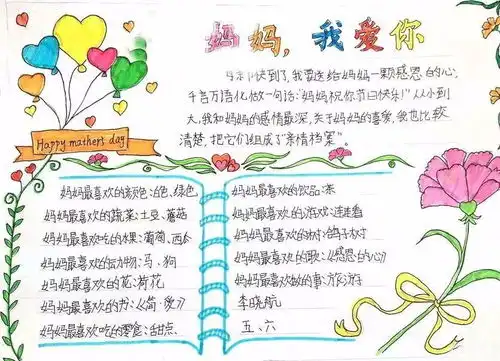 妈妈,我爱你
母亲节快到了,我要送给妈妈一颗感恩的心,
千言万语化做一句话:"妈妈祝你节日快乐!"从小到
大,我和妈妈的感情最深,关于妈妈的喜爱,我也比较
清楚,把它们组成了"亲情档案"。
Happy mathers day
妈妈最喜欢的颜色:白色、绿色
妈妈最喜欢的蔬菜:土豆、蘑菇
妈妈最喜欢吃的水果:葡萄、西瓜
妈妈最喜欢的动物:马·狗
妈妈最喜欢的花:荷花
妈妈最喜欢的书:《简·爱》
妈妈最喜欢吃的零食:甜点
妈妈最喜欢的饮品:茶
妈妈最喜欢的游戏:连连看
妈妈最喜欢的树:鸽子树
妈妈最喜欢的歌:《感恩的心》
妈妈最喜欢做的事:旅游
李晓航
五、六